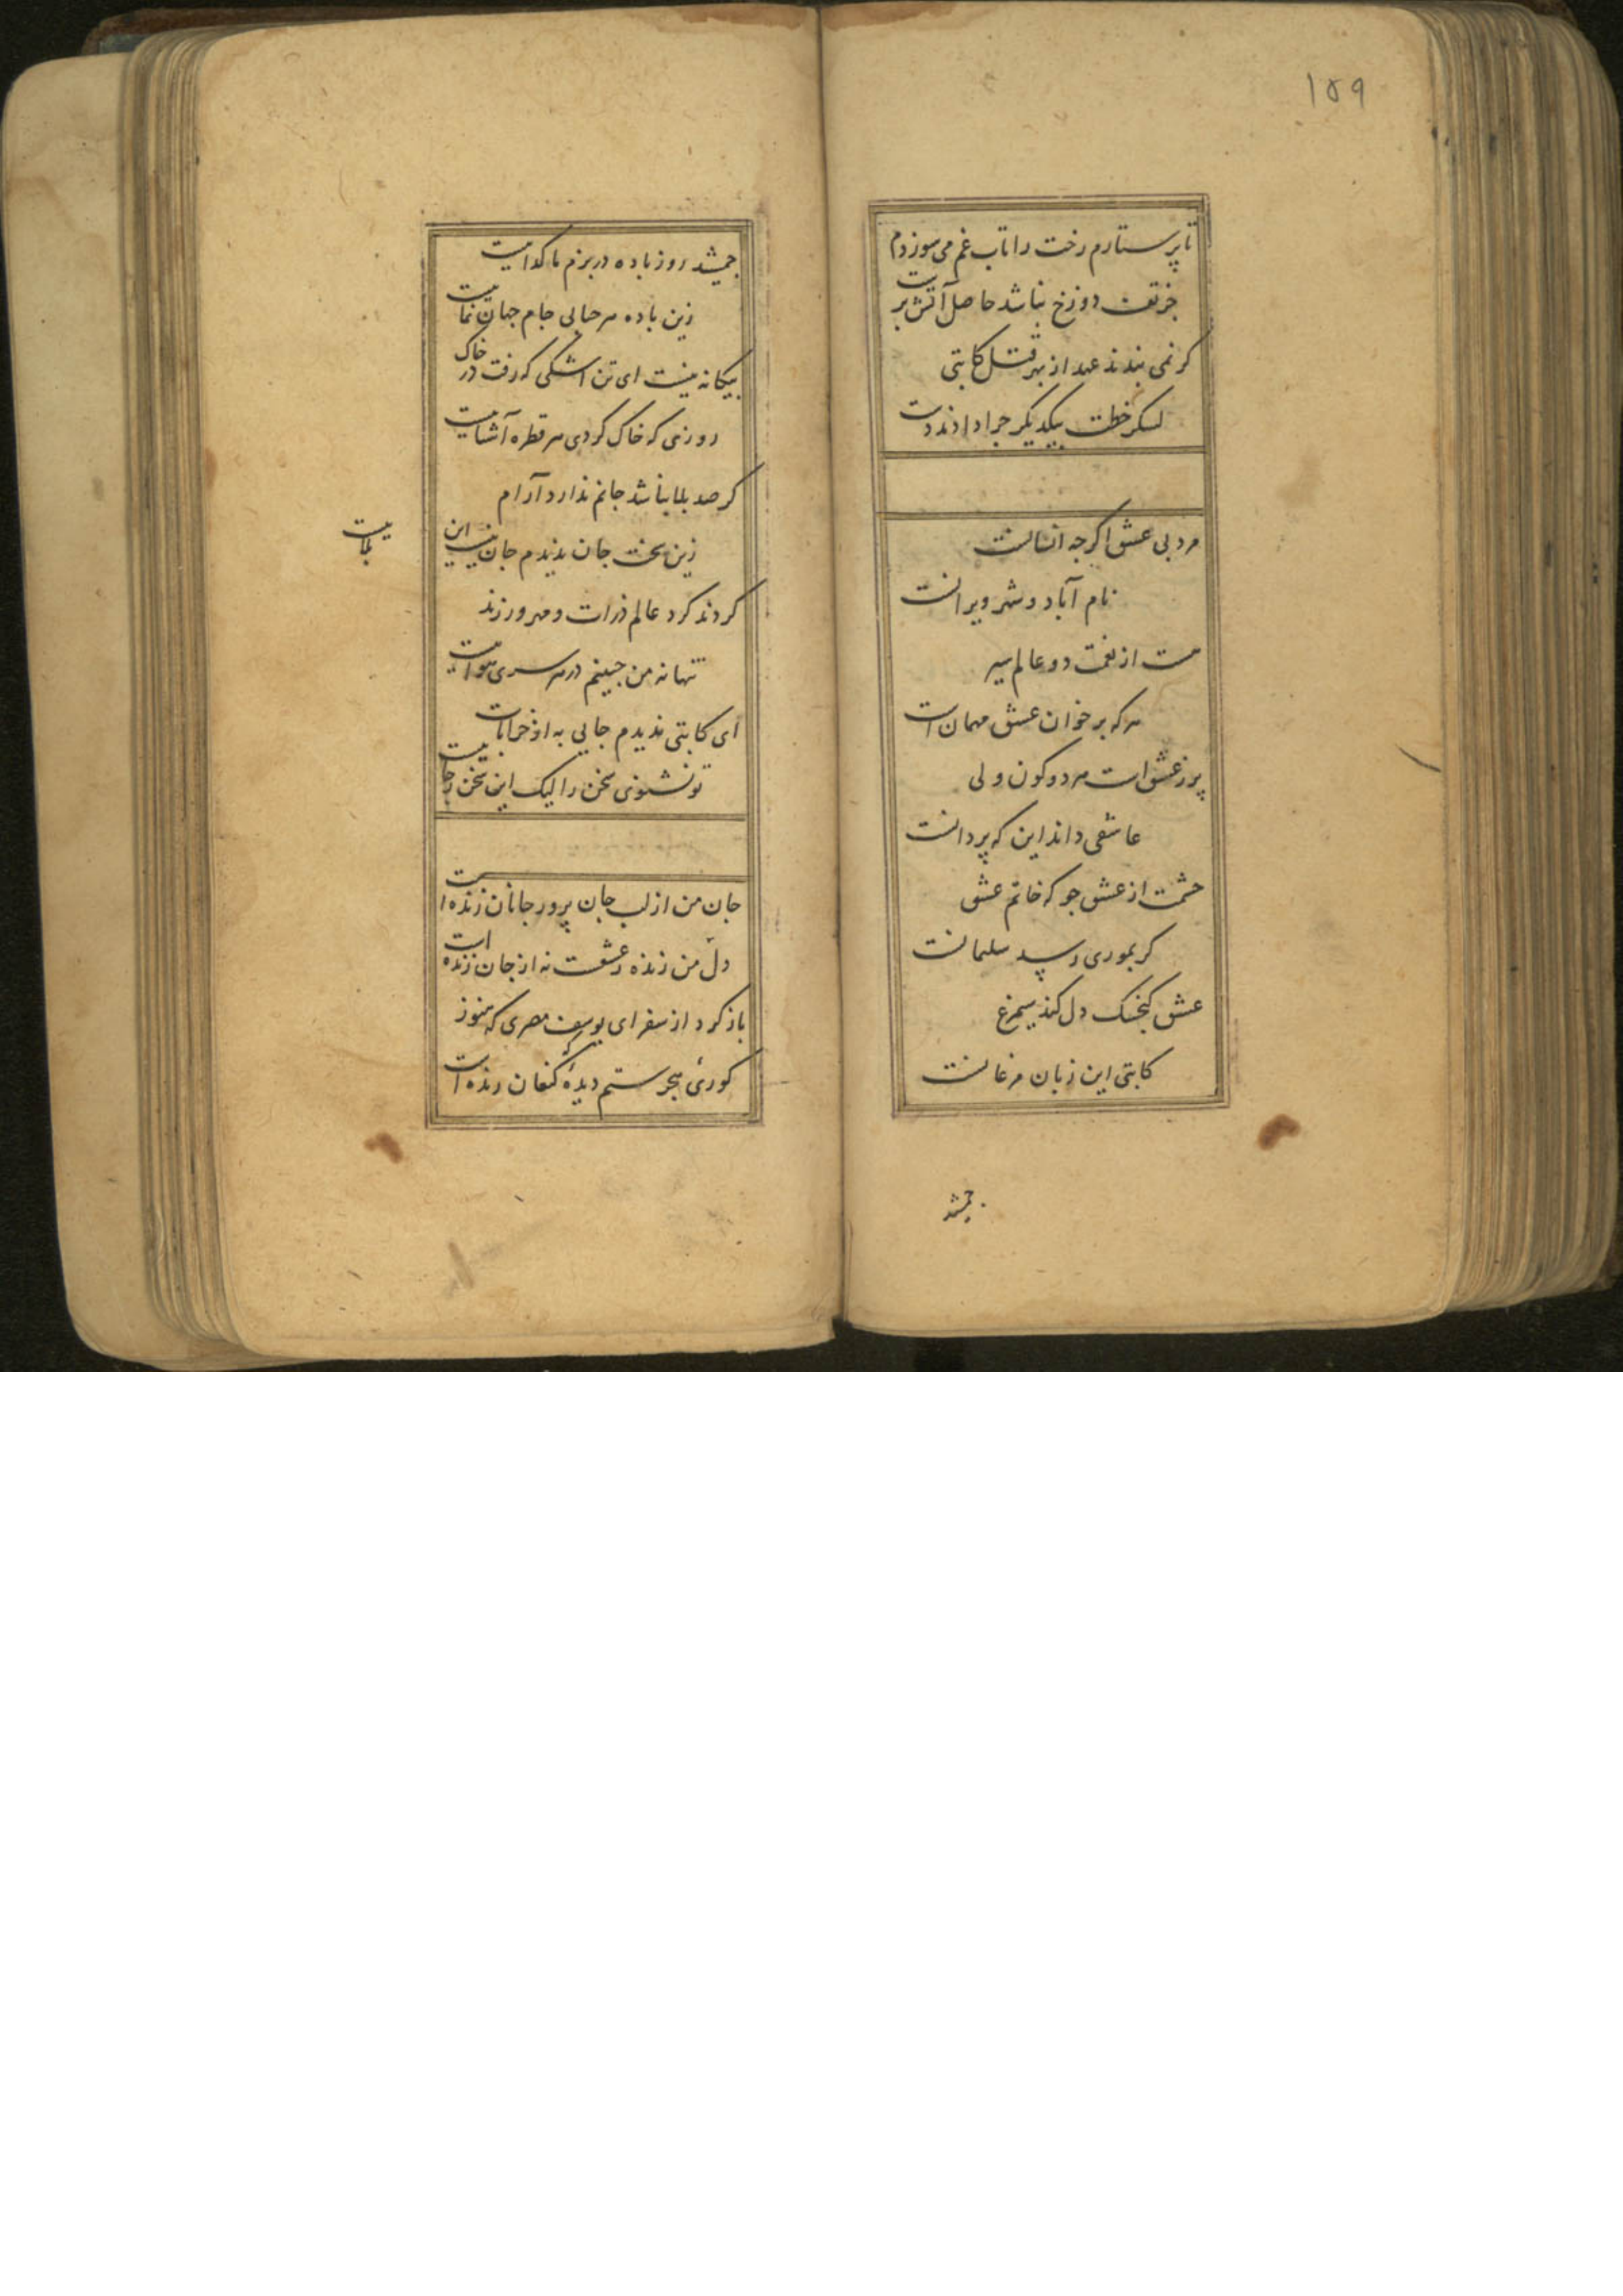 ۱۵۹
تا پرستارم رخت را تاب غم می سوزدم
جز تف دوزخ نباشد حاصل آتش پرست
کر نمی بندند عهد از بهر قتل کاتبی
لشکر خطت بیکدیکر چرا دادند دست
مرد بی عشق اکر چه انسانست
نام آباد و شهر ویرانست
هست از نعمت دو عالم سیر
هر که بر خوان عشق مهمان است
پر ز عشق است هر دو کون ولی
عاشقی داند این که پردانست
حشمت از عشق جو که خاتم عشق
کر بموری رسد سلیمانست
عشق کنجشک دل کند سیمرغ
کاتبی این زبان مرغانست
جمشید
جمشید روز باده در بزم ما کداییست
زین باده هر حبابی جام جهان نماییست
بیکانه نیست ای تن اشکی که رفت در خاک
روزی که خاک کردی هر قطره آشناییست
کر صد بلا نباشد جانم ندارد آرام
زین سخت جان ندیدم جان نیست این
بلاییست
کردند کرد عالم ذرات و مهر ورزند
تنها نه من چنینم در هر سری هواییست
ای کاتبی ندیدم جایی به از خرابات
تو نشنوی سخن را لیک این سخن بجاییست
جان من از لب جان پرور جانان زنده است
دل من زنده ز عشقست نه از جان زنده است
باز کرد از سفر ای یوسف مصری که هنوز
کوریٔ هجر ستم دیدهٔ کنعان زنده است